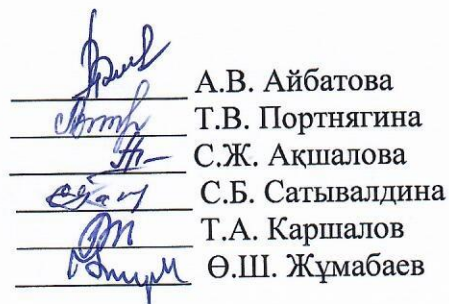 А.В. Айбатова
Т.В. Портнягина
С.Ж. Ақшалова
С.Б. Сатывалдина
Т.А. Каршалов
Ө.Ш. Жұмабаев